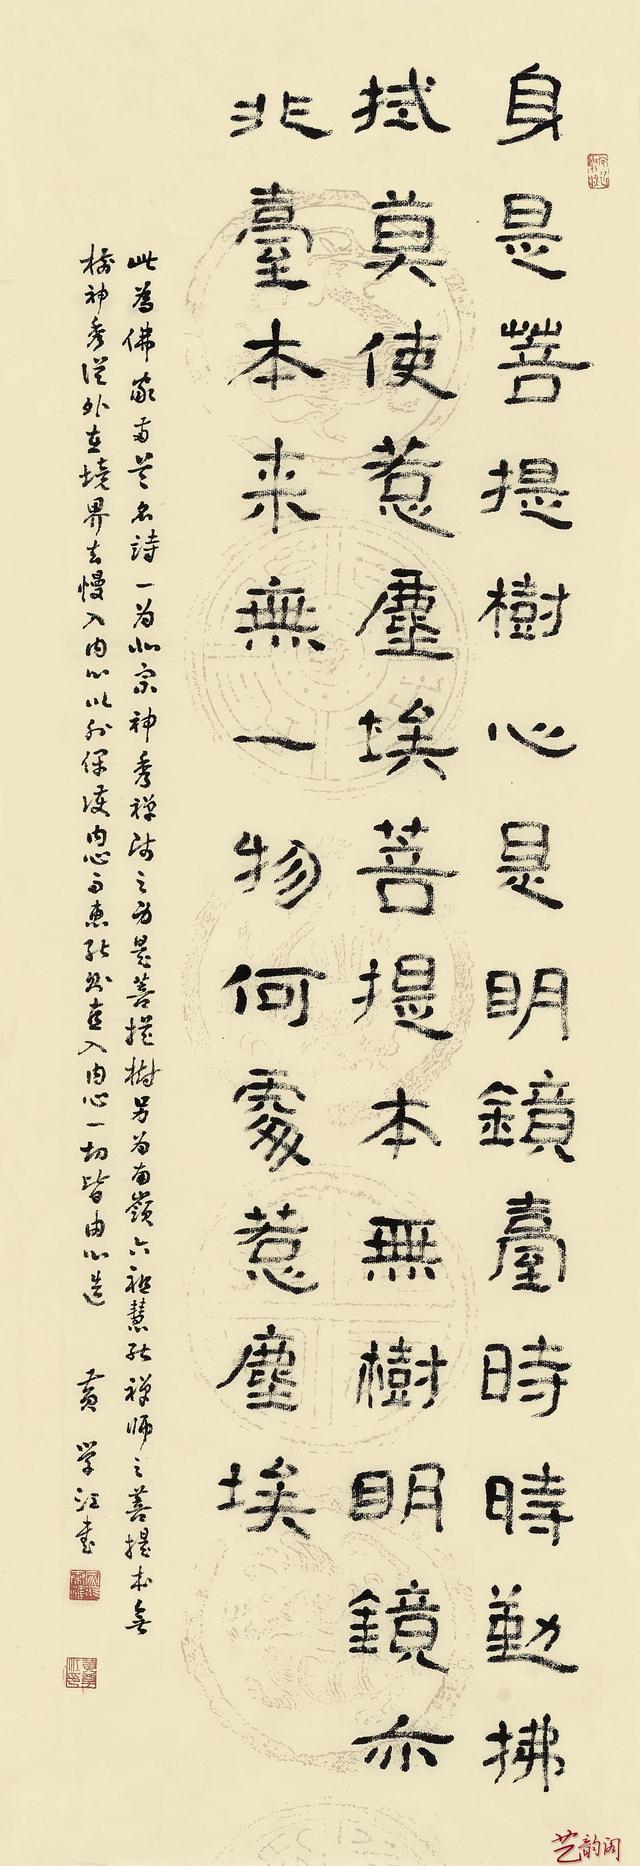 身是菩提樹心是明鏡臺時時勤拂
拭莫使惹塵埃菩提本無樹明鏡亦
非臺本来無一物何處惹塵埃
此為佛家兩首名詩一为北宗神秀禅师之身是菩提樹另为南嶺六祖慧能禅师之菩提本無
樹神秀從外在境界去慢入内心以外保護内心而惠能则直入内心一切皆由心造
黄学江书
艺韵阁